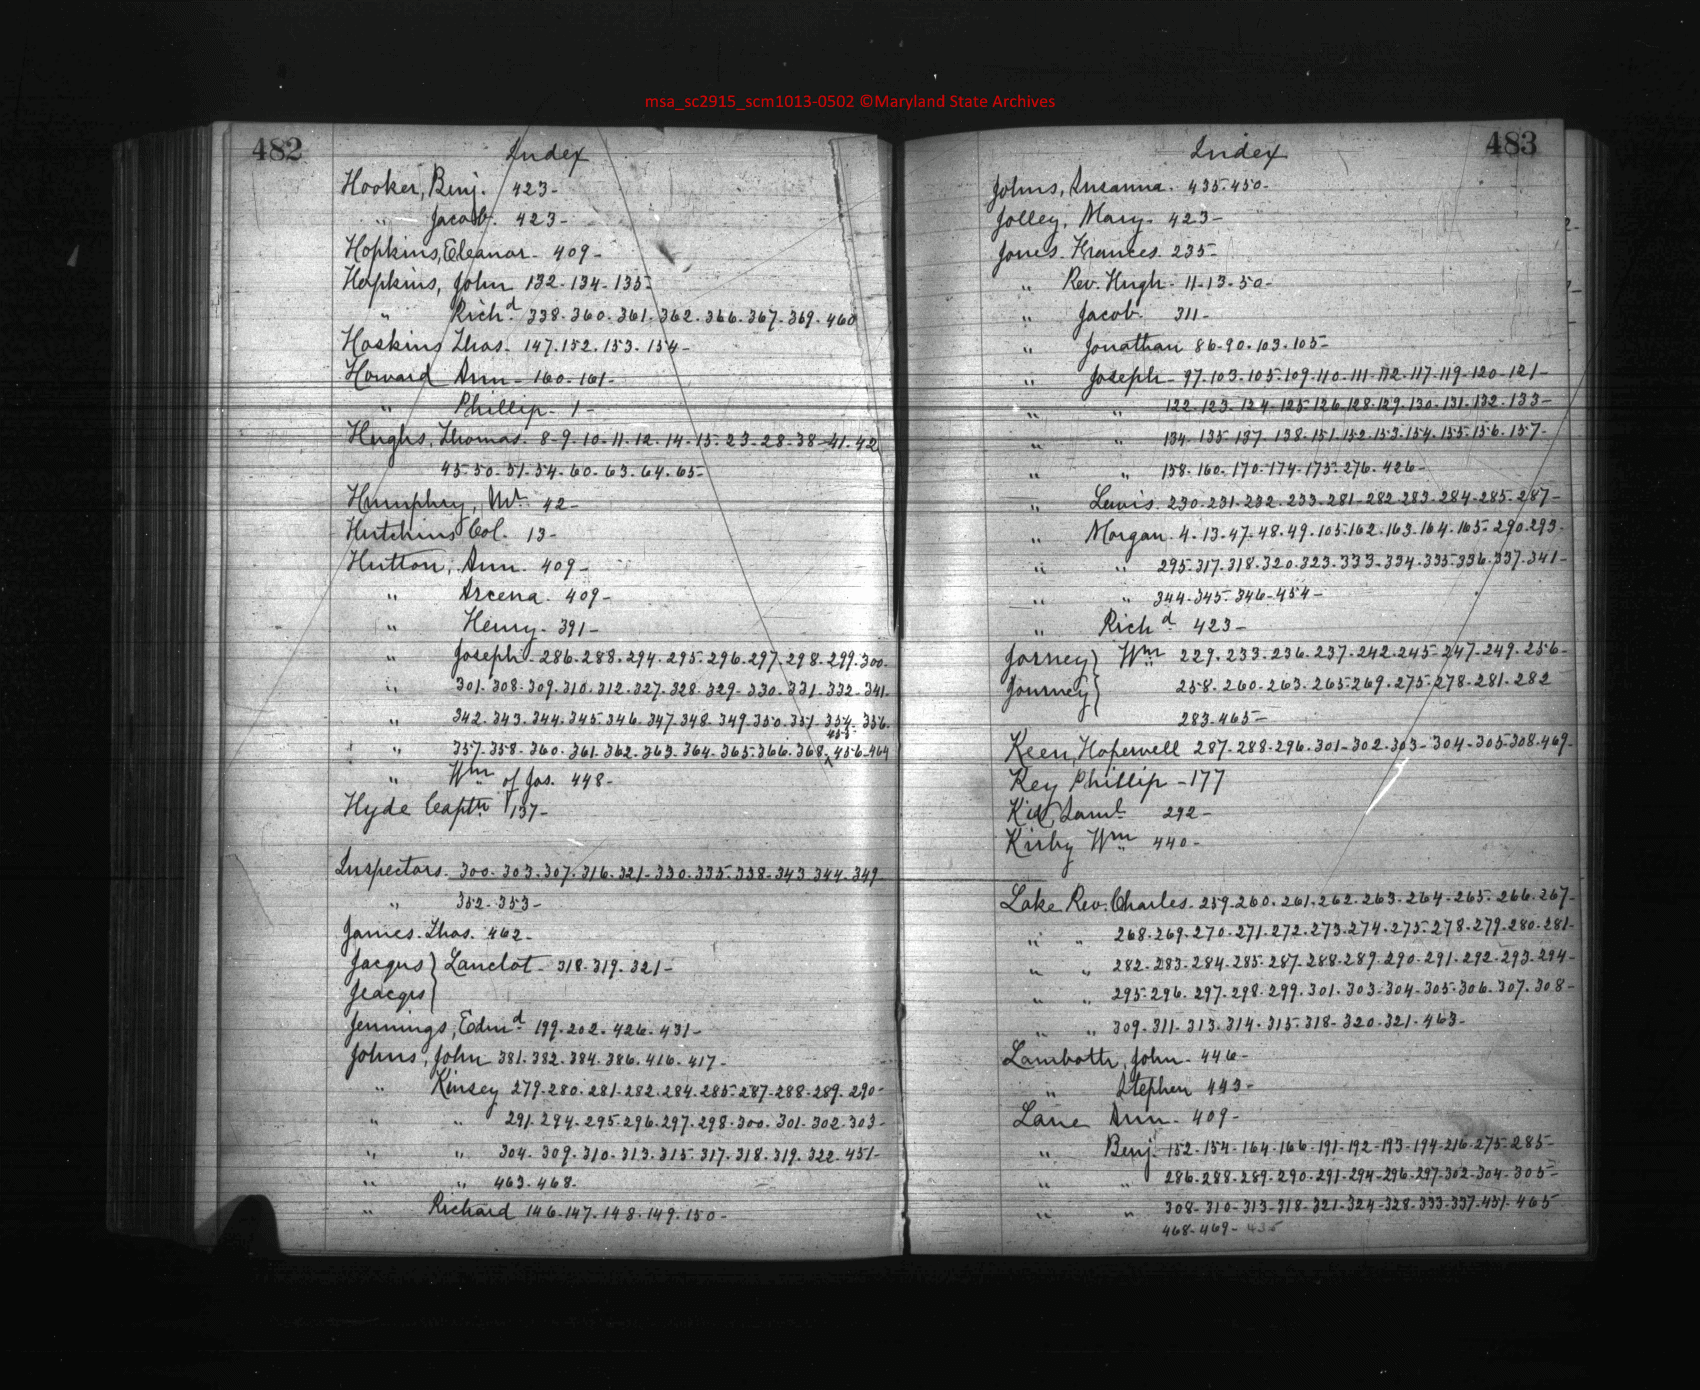 msa_sc2915_scm1013-0502 ©Maryland State Archives
482
Index
Hooker, Benj. 423-
" Jacob. 423-
Hopkins, Eleanor. 409-
Hopkins, John 132-134-135-
" Rich.d 338-360-361-362-366-367-369-460
Hoskins Thos. 147.152.153.154-
Howard Ann-160-161-
" Phillip- 1-
Hughs, Thomas. 8-9-10-11-12-14-15-23-28-38-41-42
45-50-51-54-60-63-64-65-
Humphry, Mr. 42-
Hutchins Col. 13-
Hutton, Ann. 409-
" Arcena. 409-
" Henry. 391-
" Joseph-286-288-294-295-296-297-298-299-300-
" 301-308-309-310-312-327-328-329-330-331-332-341-
" 342-343-344-345-346-347-348-349-350-351-354-356-
" 357-358-360-361-362-363-364-365-366-368-455-456-464
" Wm of Jos. 448-
Hyde Captn 137-
Inspectors. 300-303-307-316-321-330-335-338-343-344-349-
" 352-353-
James-Thos. 462-
Jacqus } Lanclot- 318-319-321-
Jeacqs }
Jennings, Edmd. 199-202-426-431-
Johns, John 381-382-384-386-416-417-
" Kinsey 279-280-281-282-284-285-287-288-289-290-
" " 291-294-295-296-297-298-300-301-302-303-
" " 304-309-310-313-315-317-318-319-322-451-
" " 463-468-
" Richard 146-147-148-149-150-
483
Index
Johns, Susanna. 435-450-
Jolley, Mary. 423-
Jones. Frances. 235-
" Rev. Hugh. 11-13-50-
" Jacob. 311-
" Jonathan 86-90-103-105-
" Joseph-97-103-105-109-110-111-112-117-119-120-121-
" " 122-123-124-125-126-128-129-130-131-132-133-
" " 134-135-137-138-151-152-153-154-155-156-157-
" " 158-160-170-174-175-276-426-
" Lewis. 230-231-232-233-281-282-283-284-285-287-
" Morgan. 4-13-47-48-49-105-162-163-164-165-290-293-
" " 295-317-318-320-323-333-334-335-336-337-341-
" " 344-345-346-454-
" Richd. 423-
Jorney } Wm 229-233-236-237-242-245-247-249-256-
Journey } 258-260-263-265-269-275-278-281-282
283-465-
Keen, Hopewell 287-288-296-301-302-303-304-305-308-469-
Key Phillip -177
Kid, Saml. 292-
Kirby Wm 440-
Lake Rev. Charles. 259-260-261-262-263-264-265-266-267-
" " 268-269-270-271-272-273-274-275-278-279-280-281-
" " 282-283-284-285-287-288-289-290-291-292-293-294-
" " 295-296-297-298-299-301-303-304-305-306-307-308-
" " 309-311-313-314-315-318-320-321-463-
Lamboth, John. 446-
" Stephen 443-
Lane Ann. 409-
" Benj. 152-154-164-166-191-192-193-194-216-275-285-
" " 286-288-289-290-291-294-296-297-302-304-305-
" " 308-310-313-318-321-324-328-333-337-451-465
468-469-435